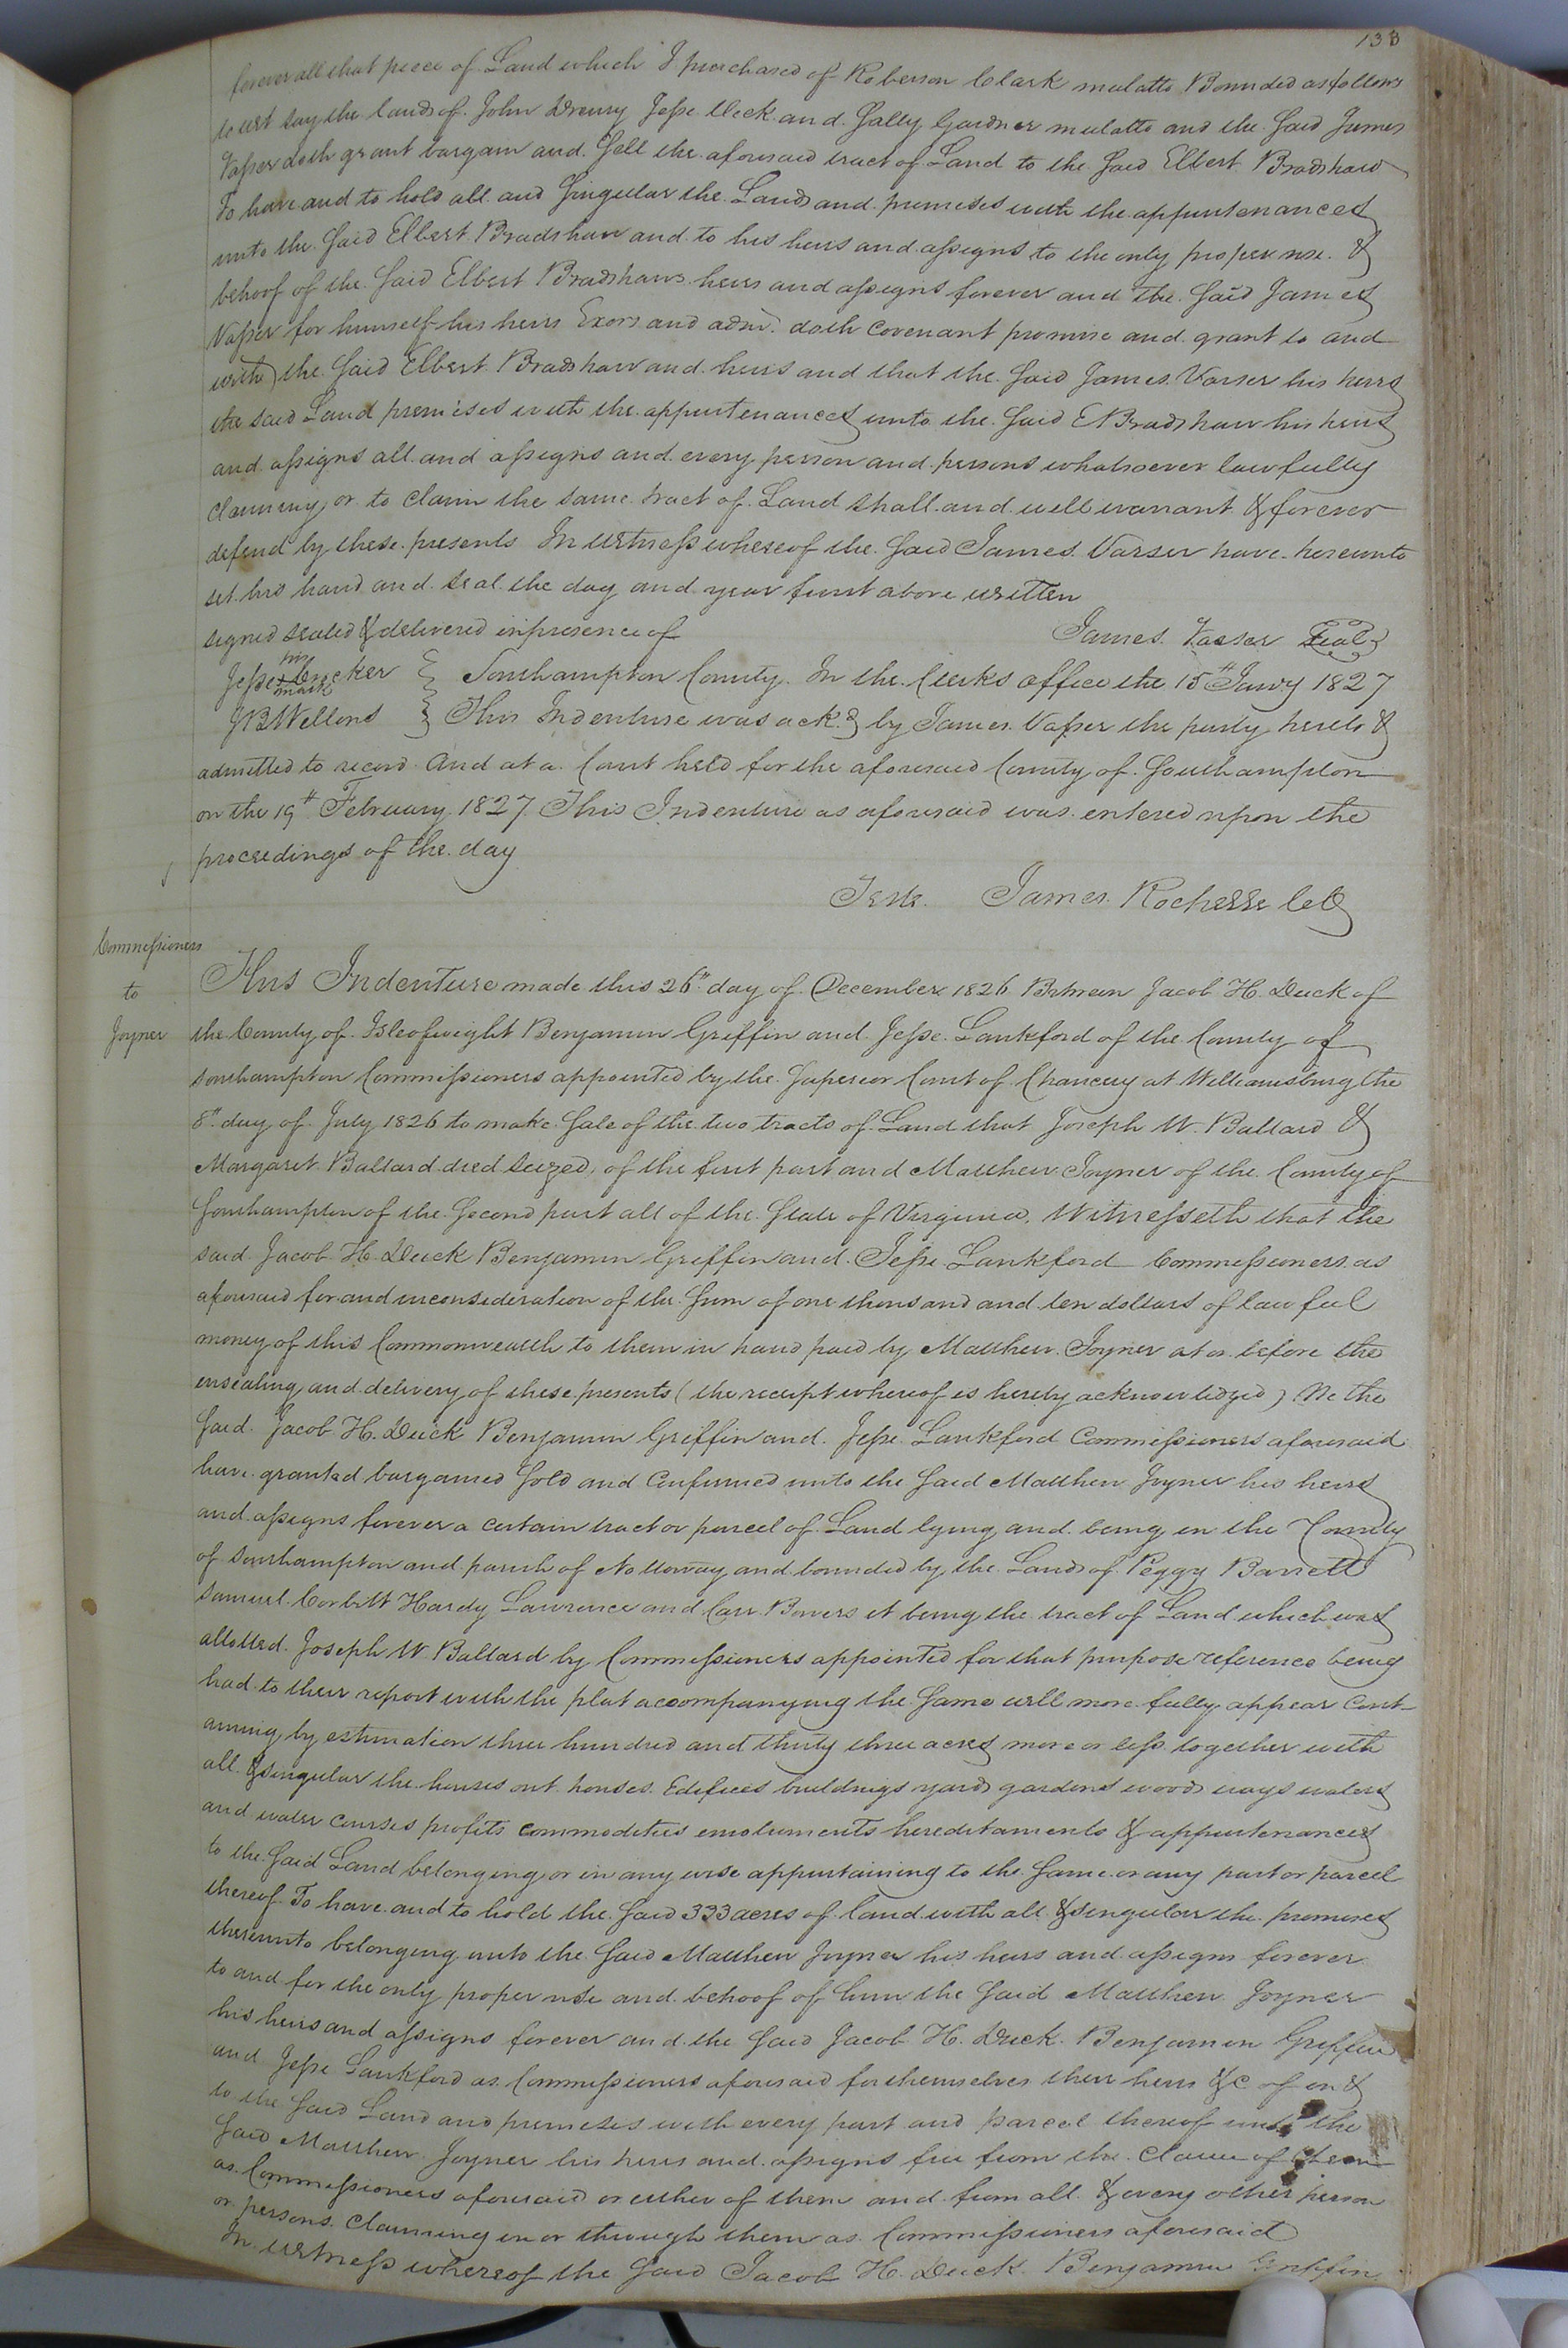 133
forever all that piece of Land which I purchased of Roberson Clark mulatto Bounded as follows
to wit say the lands of John Drewry Jesse Deck and Sally Gardner mulatto and the Said James
Vasser doth grant bargain and Sell the aforesaid tract of Land to the Said Elbert Bradshaw
To have and to hold all and Singular the Lands and premises with the appurtenances
unto the Said Elbert Bradshaw and to his heirs and assigns to the only proper use &
behoof of the Said Elbert Bradshaws heirs and assigns forever and the Said James
Vasser for himself his heirs Exors and adm. doth covenant promise and grant to and
with the Said Elbert Bradshaw and heirs and that the Said James Varser his heirs
the said Land premises with the appurtenances unto the Said E Bradshaw his heirs
and assigns all and assigns and every person and persons whatsoever lawfully
claiming or to claim the same tract of Land shall and will warrant & forever
defend by these presents In witness whereof the Said James Varser have hereunto
set his hand and seal the day and year first above written
signed sealed & delivered in presence of James Vasser Seal
Jesse his mark
JB Wellons } Southampton County In the Clerks office the 15th Jany 1827
This Indenture was ackd by James Vasser the party hereto &
admitted to record And at a Court held for the aforesaid County of Southampton
on the 19th February 1827 This Indenture as aforesaid was entered upon the
proceedings of the day
Teste James Rochelle CC
Commissioners
to
Joyner
This Indenture made this 26th day of December 1826 Between Jacob H. Duck of
the County of Isleofwight Benjamin Griffin and Jesse Lankford of the County of
Southampton Commissioners appointed by the Superior Court of Chancery at Williamsburg the
8th day of July 1826 to make Sale of the two tracts of Land that Joseph W. Ballard &
Margaret Ballard died seized, of the first part and Matthew Joyner of the County of
Southampton of the Second part all of the State of Virginia, Witnesseth that the
said Jacob H. Duck Benjamin Griffin and Jesse Lankford Commissioners as
aforesaid for and inconsideration of the Sum of one thousand and ten dollars of lawful
money of this Commonwealth to them in hand paid by Matthew Joyner at or before the
ensealing and delivery of these presents (the receipt whereof is hereby acknowledged) We the
Said Jacob H. Duck Benjamin Griffin and Jesse Lankford Commissioners aforesaid
have granted bargained Sold and Confirmed unto the Said Matthew Joyner his heirs
and assigns forever a certain tract or parcel of Land lying and being in the County
of Southampton and parish of Nottoway and bounded by the Lands of Peggy Barrett
Samuel Corbitt Hardy Lawrence and Carr Bowers it being the tract of Land which was
allotted Joseph W. Ballard by Commissioners appointed for that purpose reference being
had to their report with the plat accompanying the Same will more fully appear Cont-
aining by estimation three hundred and thirty three acres more or less together with
all & singular the houses out houses Edifices buildings yards gardens woods ways waters
and water courses profits commodities emoluments hereditaments & appurtenances
to the Said Land belonging or in any wise appertaining to the Same or any part or parcel
thereof To have and to hold the Said 333 acres of land with all & singular the premises
thereunto belonging unto the Said Matthew Joyner his heirs and assigns forever
to and for the only proper use and behoof of him the Said Matthew Joyner
his heirs and assigns forever and the Said Jacob H. Duck Benjamin Griffin
and Jesse Lankford as Commissioners aforesaid for themselves their heirs &c of on &
to the Said Land and premises with every part and parcel thereof unto the
Said Matthew Joyner his heirs and assigns free from the Claim of them
as Commissioners aforesaid or either of them and from all & every other person
or persons Claiming in or through them as Commissioners aforesaid
In witness whereof the Said Jacob H. Duck Benjamin Griffin